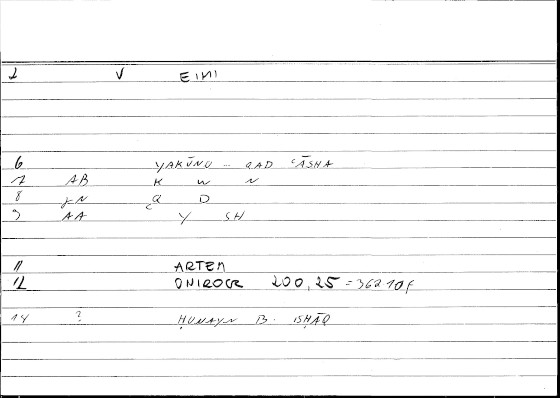 1 V EIMI
6 YAKŪNU - QAD ʿĀSHA
7 AB K W N
8 γN Q D
9 AA ʿ Y SH
11 ARTEM
12 ONIROCR 200,25 = 362 10f
14 ? ḤUNAYN B. ISḤĀQ